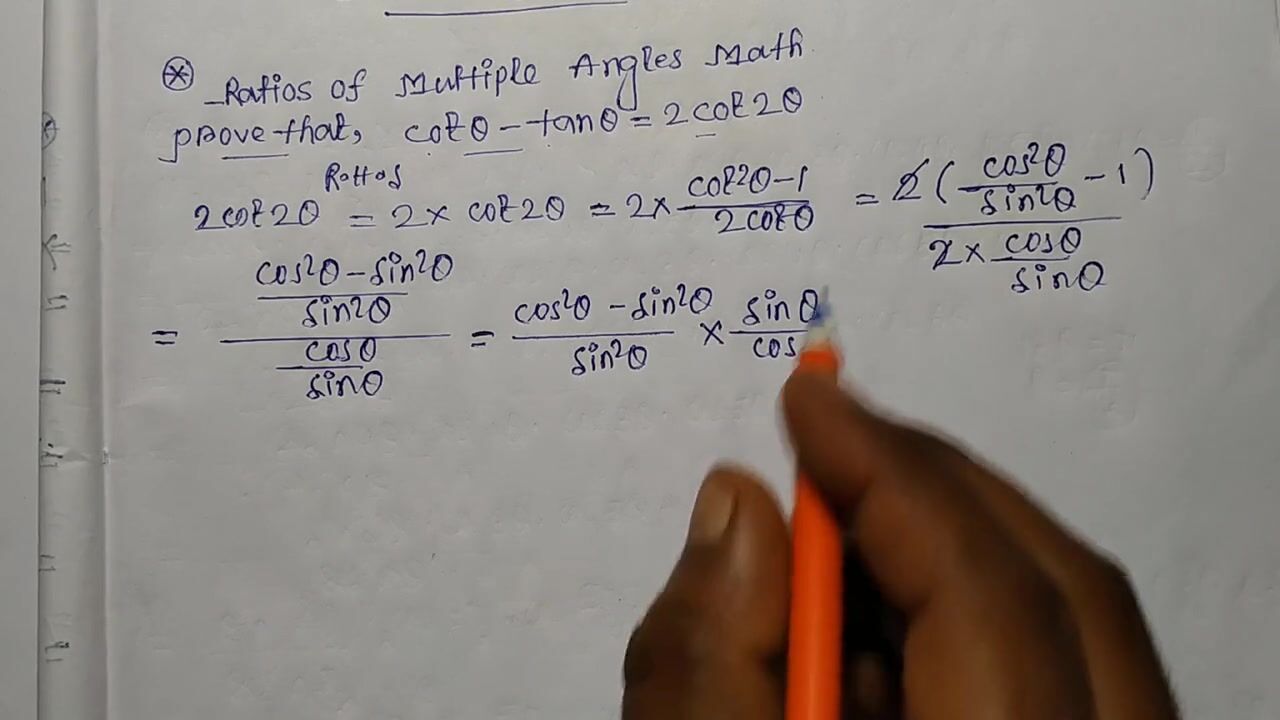 ⊛ Ratios of Multiple Angles Math
prove that, cotθ - tanθ = 2cot2θ
Rattos
2cot2θ = 2 × cot2θ = 2 × (cot²θ - 1)/(2cotθ) = 2(cos²θ/sin²θ - 1)/(2 × cosθ/sinθ)
= ((cos²θ - sin²θ)/sin²θ)/(cosθ/sinθ) = (cos²θ - sin²θ)/sin²θ × sinθ/cos